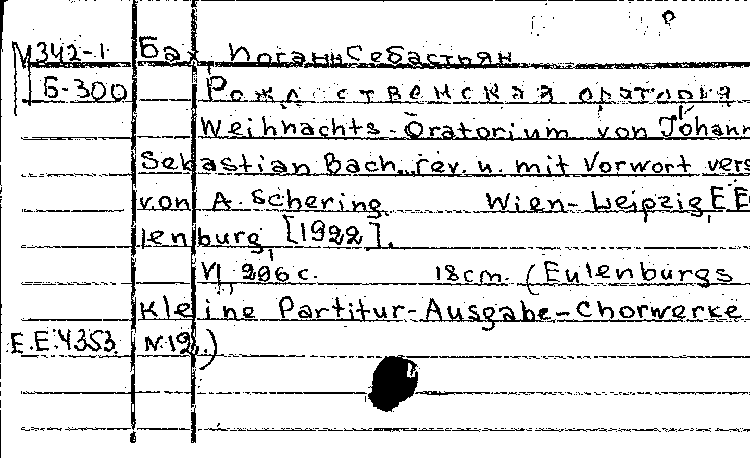 М342-1 Бах Иоганн Себастьян
Б-300 Рождественская оратория
Weihnachts-Oratorium von Johann
Sebastian Bach. rev. u. mit Vorwort vers
von A. Schering Wien-Leipzig, E E
lenburg, [1922].
VI, 296 с. 18cm. (Eulenburgs
Kleine Partitur-Ausgabe-Chorwerke
E.E.4353 N.12.)